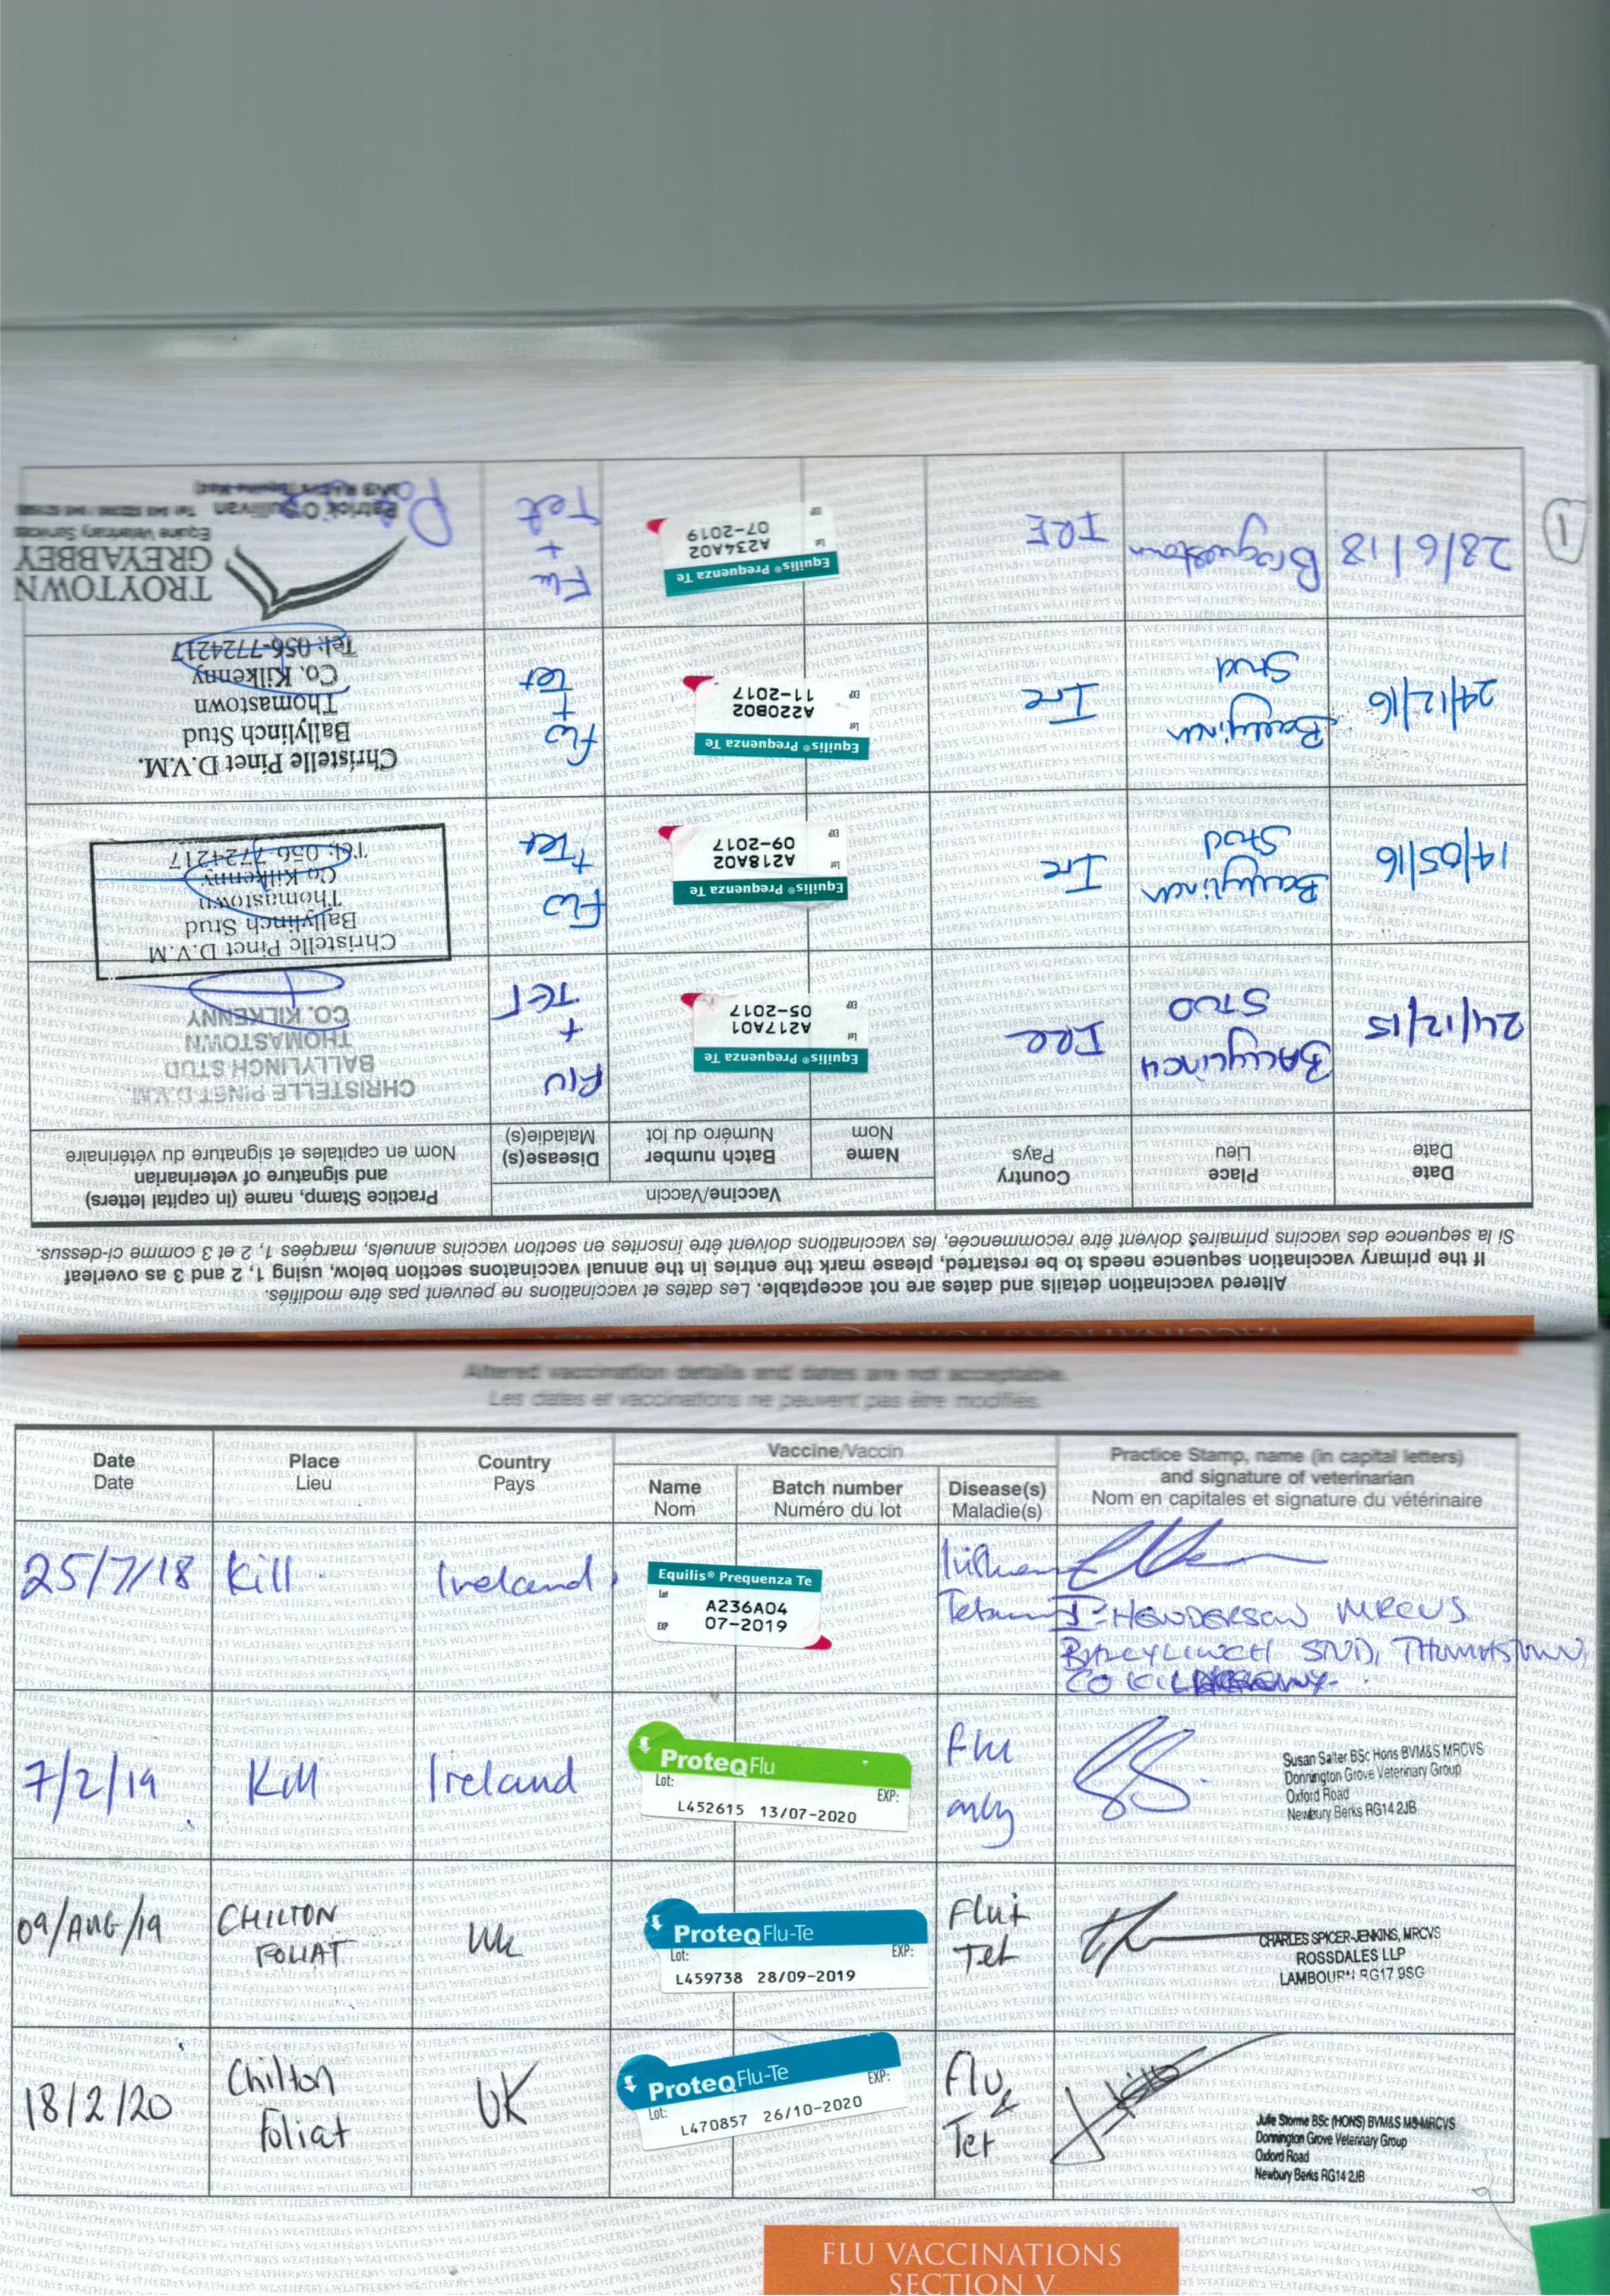 Altered vaccination details and dates are not acceptable. Les dates et vaccinations ne peuvent pas être modifiés.
If the primary vaccination sequence needs to be restarted, please mark the entries in the annual vaccinatons section below, using 1, 2 and 3 as overleaf
Si la séquence des vaccins primaires doivent être recommencée, les vaccinations doivent être inscrites en section vaccins annuels, marqées 1, 2 et 3 comme ci-dessus.
Date
Date
Place
Lieu
Country
Pays
Vaccine/Vaccin
Name
Nom
Batch number
Numéro du lot
Disease(s)
Maladie(s)
Practice Stamp, name (in capital letters)
and signature of veterinarian
Nom en capitales et signature du vétérinaire
24/12/15
BALLYLINCH
STUD
IRE
Equilis® Prequenza Te
Lot
A217A01
EXP
05-2017
FLU
+
TET
CHRISTELLE PINET D.V.M.
BALLYLINCH STUD
THOMASTOWN
CO. KILKENNY
14/05/16
Ballylinch
Stud
Ire
Equilis® Prequenza Te
Lot
A218A02
EXP
09-2017
Flu
+ Tet
Christelle Pinet D.V.M
Ballylinch Stud
Thomastown
Co Kilkenny
Tel: 056 7724217
24/12/16
Ballylinch
Stud
Ire
Equilis® Prequenza Te
Lot
A220B02
EXP
11-2017
Flu
+
tet
Christelle Pinet D.V.M.
Ballylinch Stud
Thomastown
Co. Kilkenny
Tel: 056-7724217
1
28/6/18
IRE
Equilis® Prequenza Te
Lot
A234A02
EXP
07-2019
Flu
+
Tet
TROYTOWN
GREYABBEY
Equine Veterinary Services
Patrick O'Sullivan
Altered vaccination details and dates are not acceptable.
Les dates et vaccinations ne peuvent pas être modifiés.
Date
Date
Place
Lieu
Country
Pays
Vaccine/Vaccin
Name
Nom
Batch number
Numéro du lot
Disease(s)
Maladie(s)
Practice Stamp, name (in capital letters)
and signature of veterinarian
Nom en capitales et signature du vétérinaire
25/7/18
Kill
Ireland
Equilis® Prequenza Te
Lot
A236A04
EXP
07-2019
HENDERSON MRCVS
BALLYLINCH STUD, THOMASTOWN,
CO KILKENNY
7/2/19
Kill
Ireland
ProteqFlu
Lot:
EXP:
L452615 13/07-2020
Flu
only
Susan Salter BSc Hons BVM&S MRCVS
Donnington Grove Veterinary Group
Oxford Road
Newbury Berks RG14 2JB
09/AUG/19
CHILTON
FOLIAT
UK
ProteqFlu-Te
Lot:
EXP:
L459738 28/09-2019
Flu+
Tet
CHARLES SPICER-JENKINS, MRCVS
ROSSDALES LLP
LAMBOURN RG17 9SG
18/2/20
Chilton
Foliat
UK
ProteqFlu-Te
Lot:
EXP:
L470857 26/10-2020
Flu
&
Tet
Julie Storme BSc (HONS) BVM&S MS MRCVS
Donnington Grove Veterinary Group
Oxford Road
Newbury Berks RG14 2JB
FLU VACCINATIONS
SECTION V